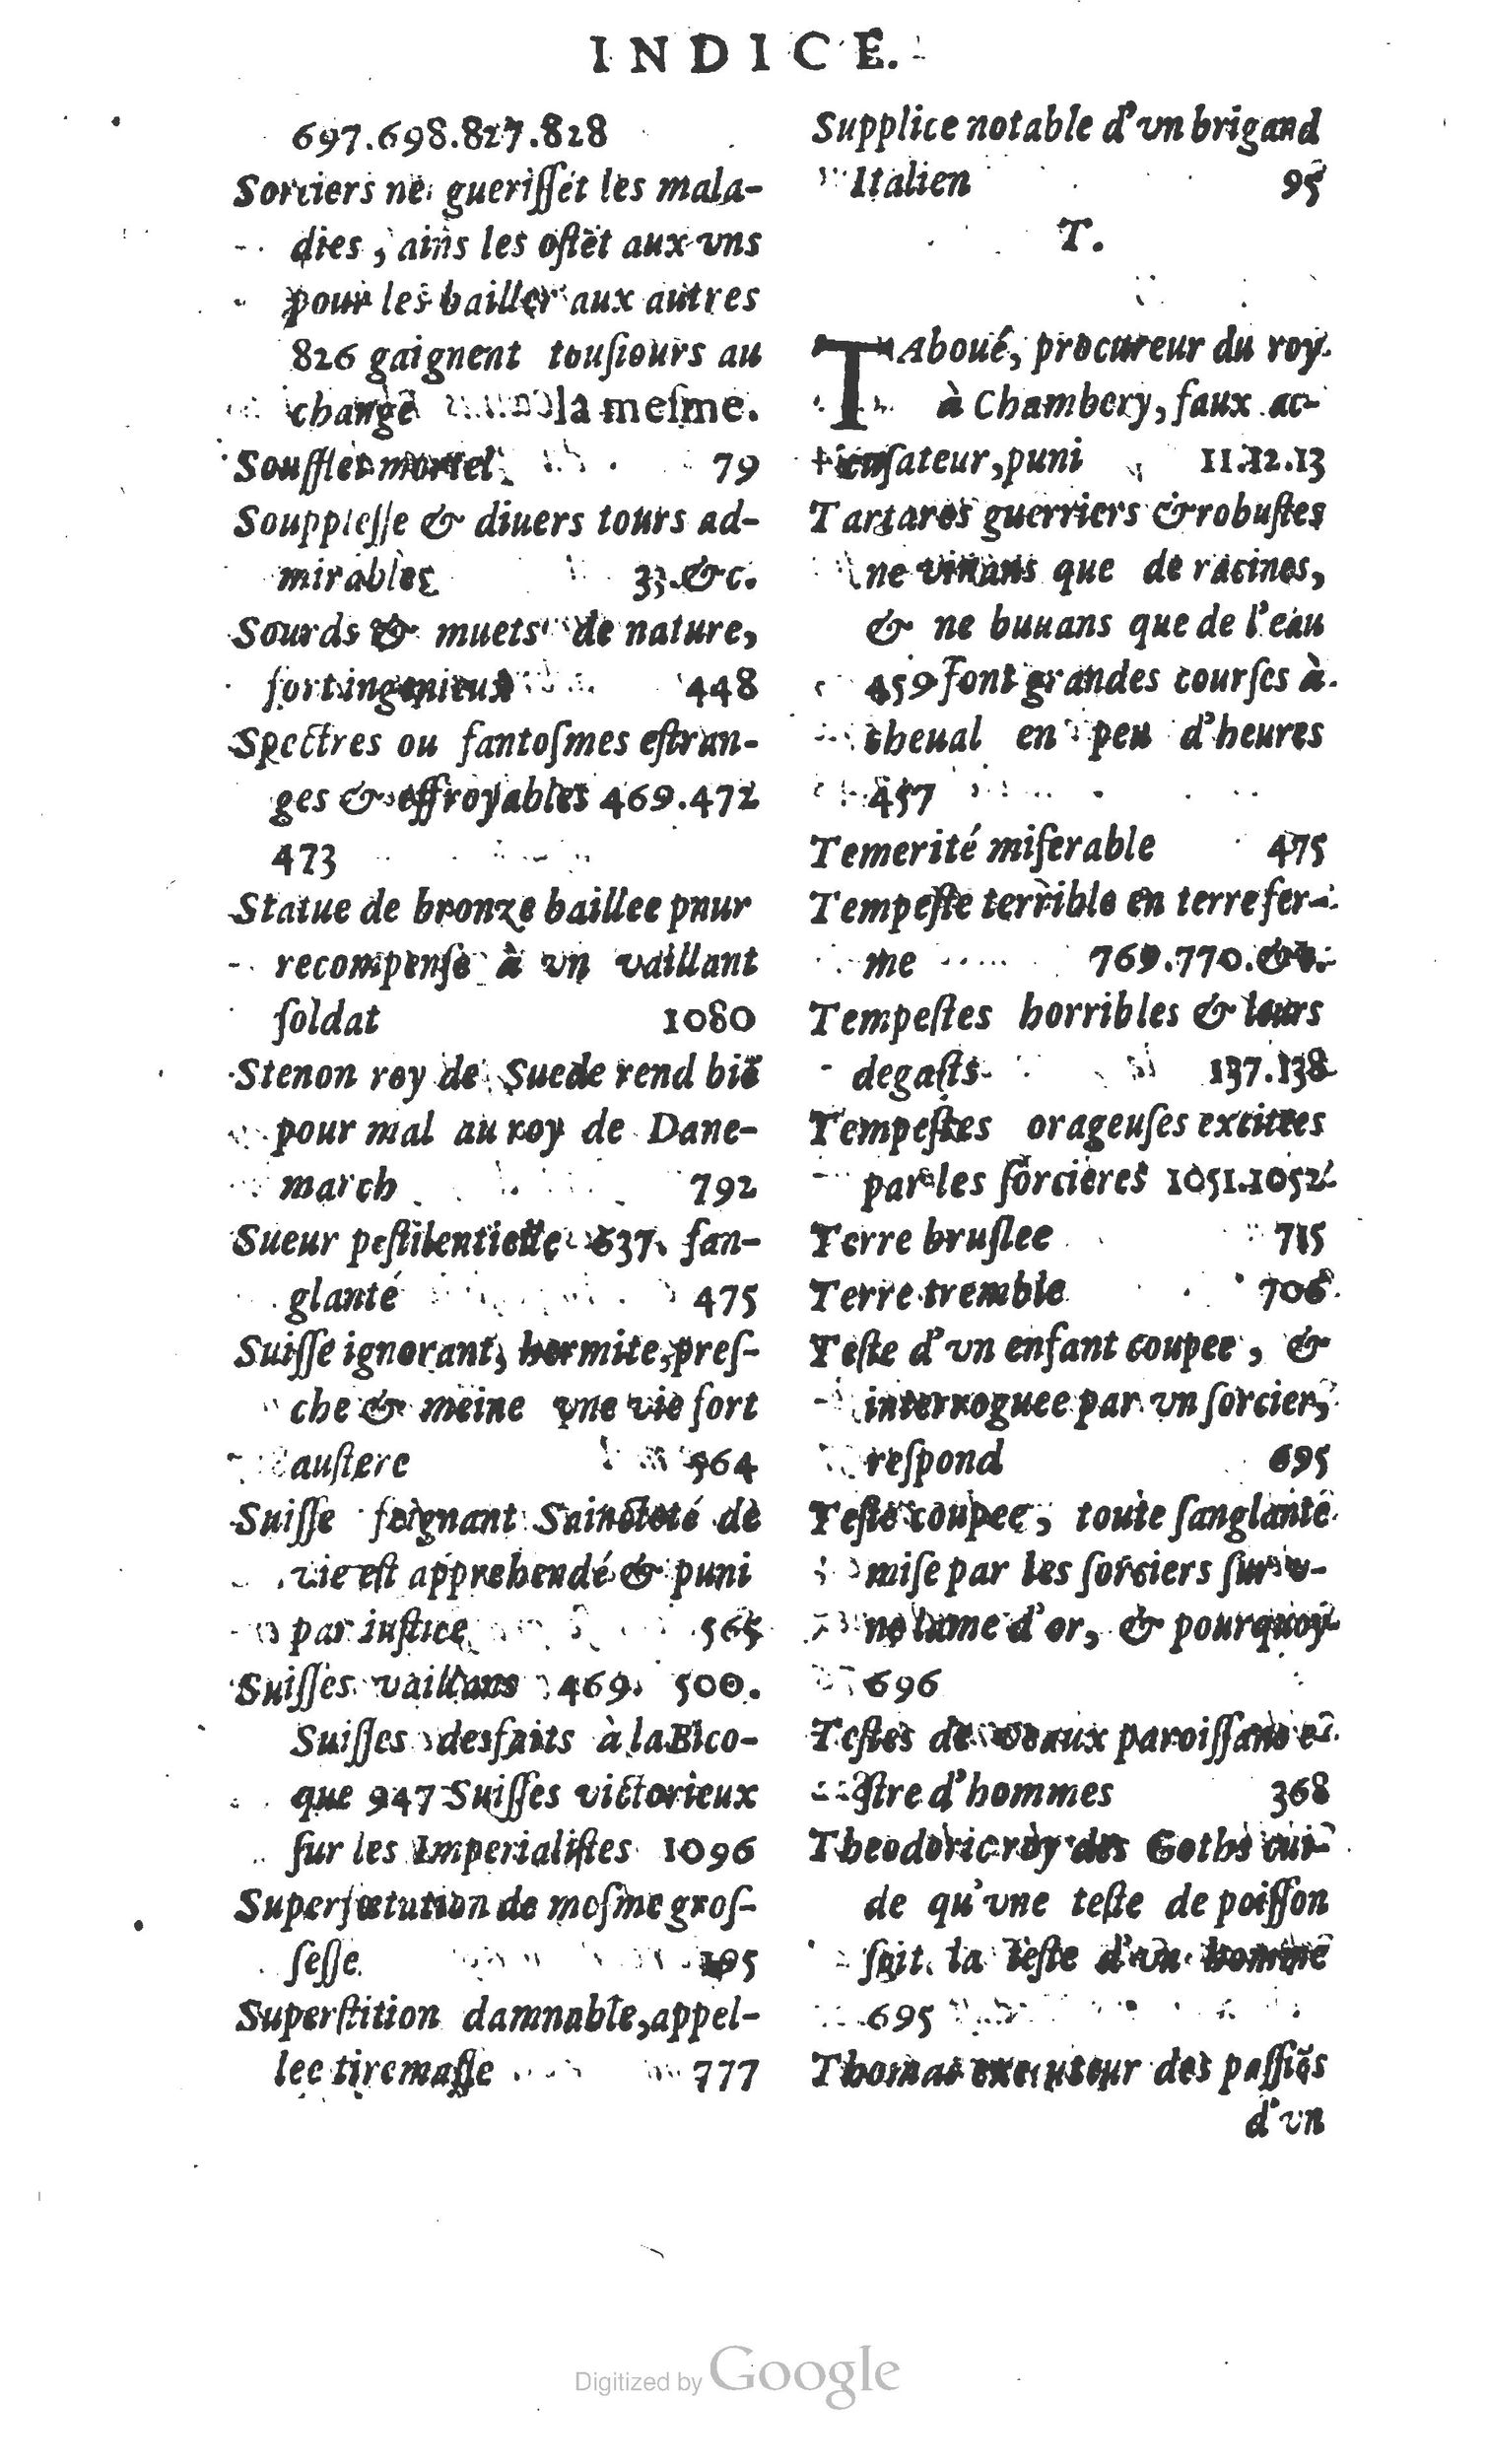 INDICE.
697.698.827.828
Sorciers ne gueriſſét les mala-
dies, ains les oſtēt aux vns
pour les bailler aux autres
826 gaignent touſiours au
change la meſme.
Soufflet mortel 79
Souppleſſe & diuers tours ad-
mirables 33.&c.
Sourds & muets de nature,
fort ingenieux 448
Spectres ou fantoſmes eſtran-
ges & effroyables 469.472
473
Statue de bronze baillee pnur
recompenſe à vn vaillant
ſoldat 1080
Stenon roy de Suede rend biē
pour mal au roy de Dane-
march 792
Sueur peſtilentielle 637. ſan-
glante 475
Suiſſe ignorant, hermite, preſ-
che & meine vne vie fort
auſtere 564
Suiſſe feignant Saincteté de
vie eſt apprehendé & puni
par iuſtice 565
Suiſſes vaillans 469. 500.
Suiſſes desfaits à la Bico-
que 947 Suiſſes victorieux
ſur les Imperialiſtes 1096
Superfœtation de meſme groſ-
ſeſſe
Superſtition damnable, appel-
lee tiremaſſe 777
Supplice notable d'vn brigand
Italien 95
T.
TAboué, procureur du roy
à Chambery, faux ac-
cuſateur, puni 11.12.13
Tartares guerriers & robuſtes
ne viuans que de racines,
& ne buuans que de l'eau
459 font grandes courſes à
cheual en peu d'heures
457
Temerité miſerable 475
Tempeſte terrible en terre fer-
me 769.770.&c.
Tempeſtes horribles & leurs
degaſts 137.138
Tempeſtes orageuſes excitees
par les ſorcieres 1051.1052
Terre bruſlee 715
Terre tremble 706
Teſte d'vn enfant coupee, &
interroguee par vn ſorcier,
reſpond 695
Teſte coupee, toute ſanglante
miſe par les ſorciers ſur v-
ne lame d'or, & pourquoy
696
Teſtes de veaux paroiſſans e-
ſtre d'hommes 368
Theodoric roy des Goths cui-
de qu'vne teſte de poiſſon
ſoit la teſte d'vn homme
695
Thomas executeur des paſſiōs
d'vn
Digitized by Google